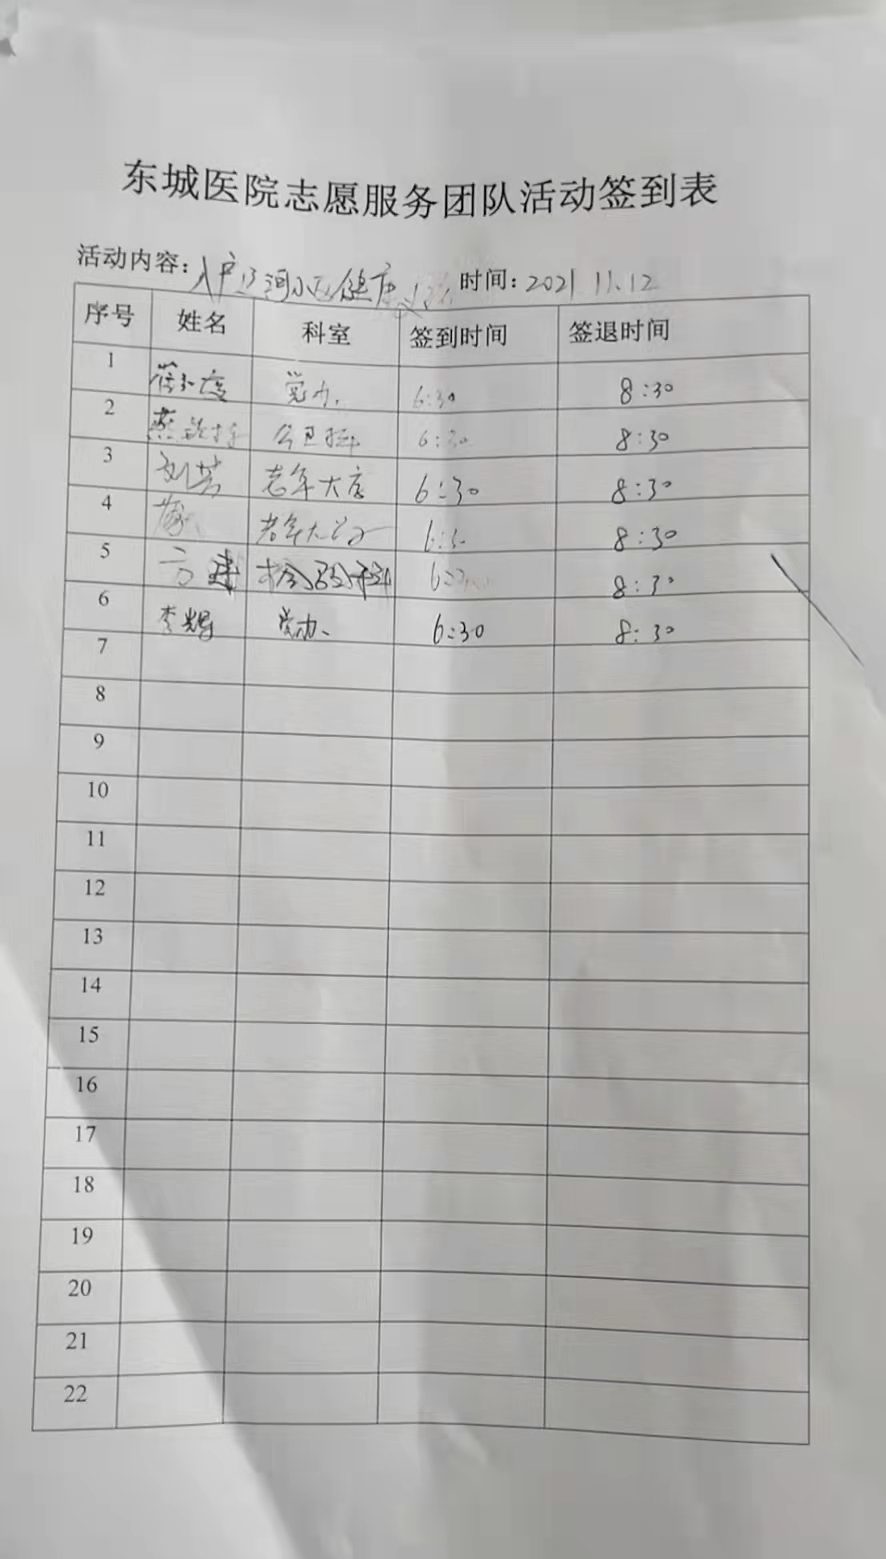 东城医院志愿服务团队活动签到表
活动内容: 入户 河小区健康 时间: 2021 11.12
序号 姓名 科室 签到时间 签退时间
1 党办. 6:30 8:30
2 公卫科 6:30 8:30
3 刘芳 老年大店 6:30 8:30
4 老年大 6:30 8:30
5 8:30
6 李娟 党办、 6:30 8:30
7
8
9
10
11
12
13
14
15
16
17
18
19
20
21
22